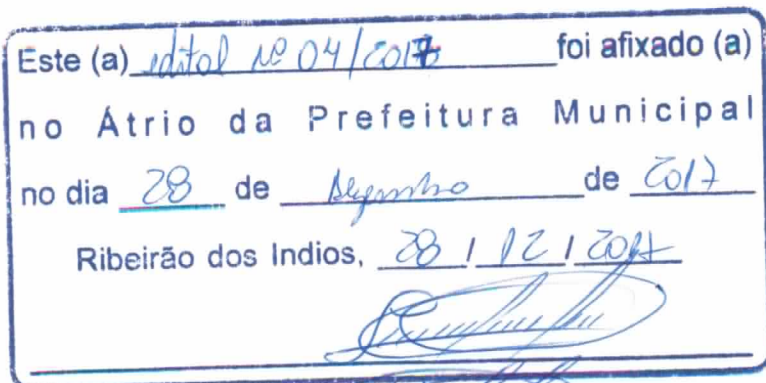 Este (a) edital nº 04/2017 foi afixado (a)
no Átrio da Prefeitura Municipal
no dia 28 de dezembro de 2017
Ribeirão dos Indios, 28 / 12 / 2017